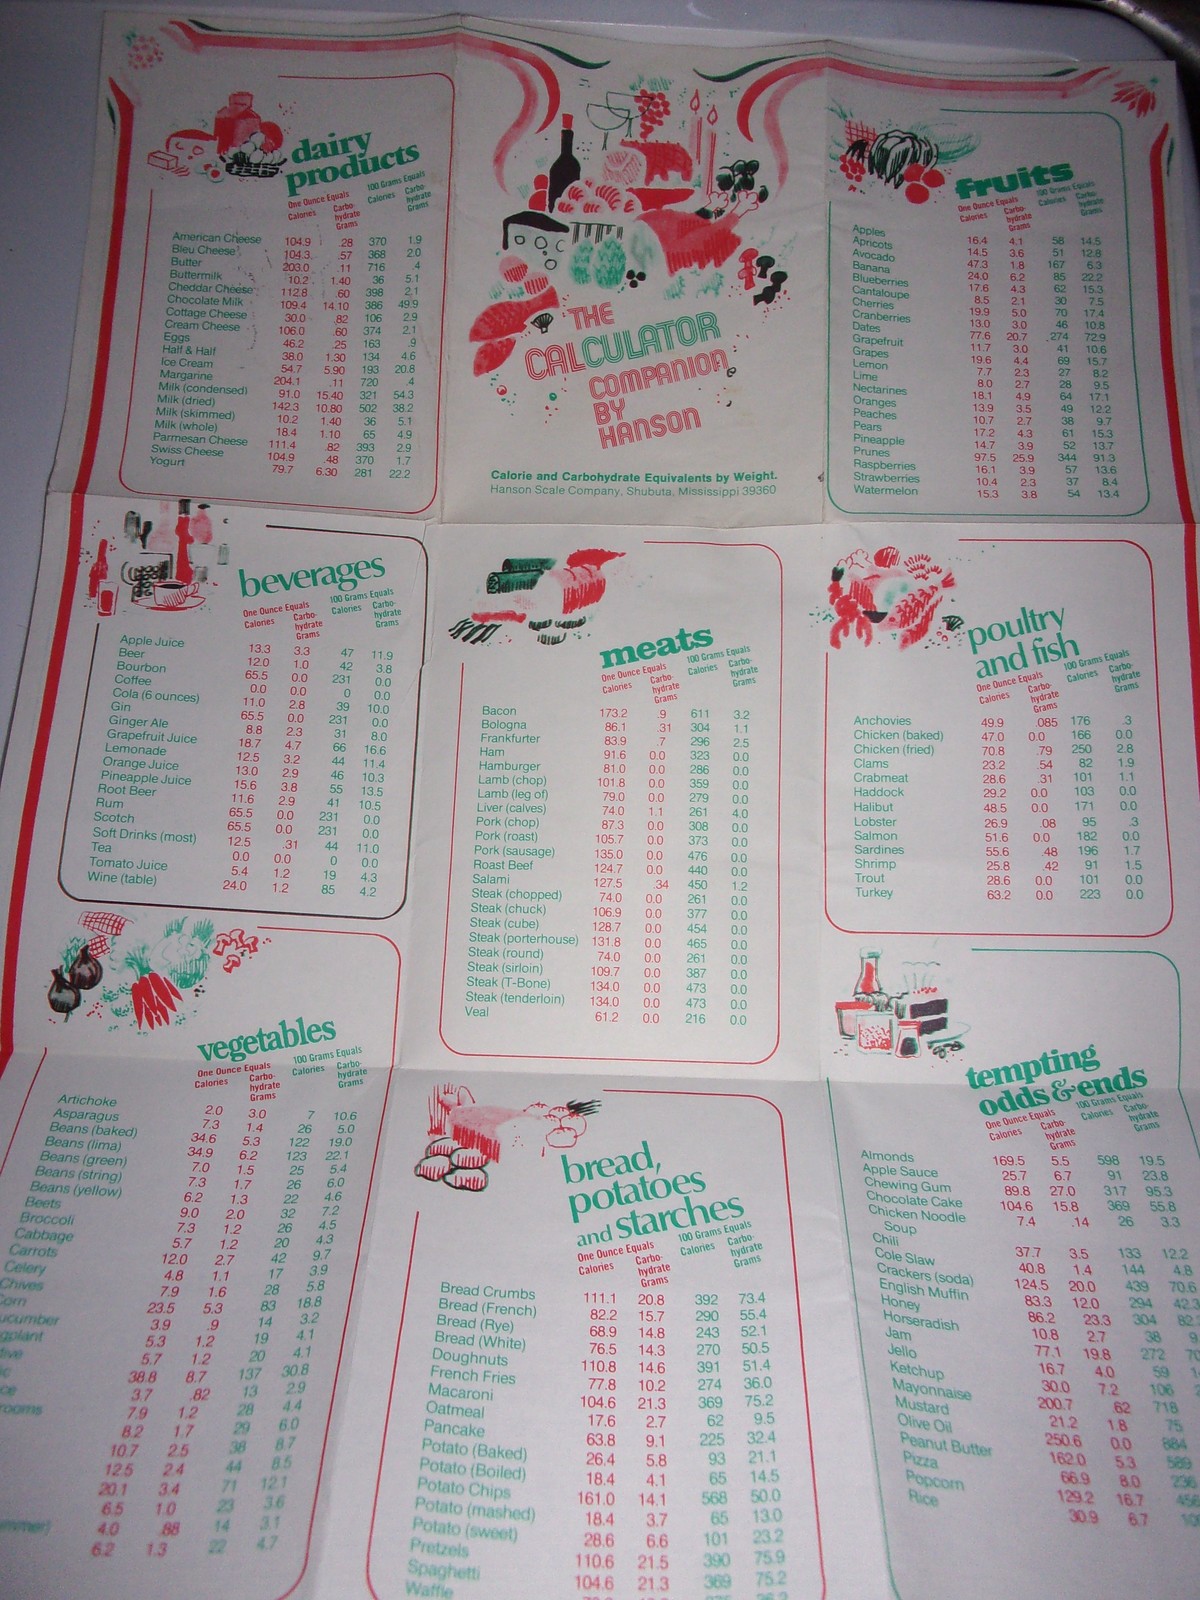 dairy
products
One Ounce Equals 100 Grams Equals
Calories Carbo-hydrate Grams Calories Carbo-hydrate Grams
American Cheese 104.9 .28 370 1.9
Bleu Cheese 104.3 .57 368 2.0
Butter 203.0 .11 716 .4
Buttermilk 10.2 1.40 36 5.1
Cheddar Cheese 112.8 .60 398 2.1
Chocolate Milk 109.4 14.10 386 49.9
Cottage Cheese 30.0 .82 106 2.9
Cream Cheese 106.0 .60 374 2.1
Eggs 46.2 .25 163 .9
Half & Half 38.0 1.30 134 4.6
Ice Cream 54.7 5.90 193 20.8
Margarine 204.1 .11 720 .4
Milk (condensed) 91.0 15.40 321 54.3
Milk (dried) 142.3 10.80 502 38.2
Milk (skimmed) 10.2 1.40 36 5.1
Milk (whole) 18.4 1.10 65 4.9
Parmesan Cheese 111.4 .82 393 2.9
Swiss Cheese 104.9 .48 370 1.7
Yogurt 79.7 6.30 281 22.2
THE
CALCULATOR
COMPANION
BY
HANSON
Calorie and Carbohydrate Equivalents by Weight.
Hanson Scale Company, Shubuta, Mississippi 39360
fruits
One Ounce Equals 100 Grams Equals
Calories Carbo-hydrate Grams Calories Carbo-hydrate Grams
Apples 16.4 4.1 58 14.5
Apricots 14.5 3.6 51 12.8
Avocado 47.3 1.8 167 6.3
Banana 24.0 6.2 85 22.2
Blueberries 17.6 4.3 62 15.3
Cantaloupe 8.5 2.1 30 7.5
Cherries 19.9 5.0 70 17.4
Cranberries 13.0 3.0 46 10.8
Dates 77.6 20.7 274 72.9
Grapefruit 11.7 3.0 41 10.6
Grapes 19.6 4.4 69 15.7
Lemon 7.7 2.3 27 8.2
Lime 8.0 2.7 28 9.5
Nectarines 18.1 4.9 64 17.1
Oranges 13.9 3.5 49 12.2
Peaches 10.7 2.7 38 9.7
Pears 17.2 4.3 61 15.3
Pineapple 14.7 3.9 52 13.7
Prunes 97.5 25.9 344 91.3
Raspberries 16.1 3.9 57 13.6
Strawberries 10.4 2.3 37 8.4
Watermelon 15.3 3.8 54 13.4
beverages
One Ounce Equals 100 Grams Equals
Calories Carbo-hydrate Grams Calories Carbo-hydrate Grams
Apple Juice 13.3 3.3 47 11.9
Beer 12.0 1.0 42 3.8
Bourbon 65.5 0.0 231 0.0
Coffee 0.0 0.0 0 0.0
Cola (6 ounces) 11.0 2.8 39 10.0
Gin 65.5 0.0 231 0.0
Ginger Ale 8.8 2.3 31 8.0
Grapefruit Juice 18.7 4.7 66 16.6
Lemonade 12.5 3.2 44 11.4
Orange Juice 13.0 2.9 46 10.3
Pineapple Juice 15.6 3.8 55 13.5
Root Beer 11.6 2.9 41 10.5
Rum 65.5 0.0 231 0.0
Scotch 65.5 0.0 231 0.0
Soft Drinks (most) 12.5 .31 44 11.0
Tea 0.0 0.0 0 0.0
Tomato Juice 5.4 1.2 19 4.3
Wine (table) 24.0 1.2 85 4.2
meats
One Ounce Equals 100 Grams Equals
Calories Carbo-hydrate Grams Calories Carbo-hydrate Grams
Bacon 173.2 .9 611 3.2
Bologna 86.1 .31 304 1.1
Frankfurter 83.9 .7 296 2.5
Ham 91.6 0.0 323 0.0
Hamburger 81.0 0.0 286 0.0
Lamb (chop) 101.8 0.0 359 0.0
Lamb (leg of) 79.0 0.0 279 0.0
Liver (calves) 74.0 1.1 261 4.0
Pork (chop) 87.3 0.0 308 0.0
Pork (roast) 105.7 0.0 373 0.0
Pork (sausage) 135.0 0.0 476 0.0
Roast Beef 124.7 0.0 440 0.0
Salami 127.5 .34 450 1.2
Steak (chopped) 74.0 0.0 261 0.0
Steak (chuck) 106.9 0.0 377 0.0
Steak (cube) 128.7 0.0 454 0.0
Steak (porterhouse) 131.8 0.0 465 0.0
Steak (round) 74.0 0.0 261 0.0
Steak (sirloin) 109.7 0.0 387 0.0
Steak (T-Bone) 134.0 0.0 473 0.0
Steak (tenderloin) 134.0 0.0 473 0.0
Veal 61.2 0.0 216 0.0
poultry
and fish
One Ounce Equals 100 Grams Equals
Calories Carbo-hydrate Grams Calories Carbo-hydrate Grams
Anchovies 49.9 .085 176 .3
Chicken (baked) 47.0 0.0 166 0.0
Chicken (fried) 70.8 .79 250 2.8
Clams 23.2 .54 82 1.9
Crabmeat 28.6 .31 101 1.1
Haddock 29.2 0.0 103 0.0
Halibut 48.5 0.0 171 0.0
Lobster 26.9 .08 95 .3
Salmon 51.6 0.0 182 0.0
Sardines 55.6 .48 196 1.7
Shrimp 25.8 .42 91 1.5
Trout 28.6 0.0 101 0.0
Turkey 63.2 0.0 223 0.0
vegetables
One Ounce Equals 100 Grams Equals
Calories Carbo-hydrate Grams Calories Carbo-hydrate Grams
Artichoke 2.0 3.0 7 10.6
Asparagus 7.3 1.4 26 5.0
Beans (baked) 34.6 5.3 122 19.0
Beans (lima) 34.9 6.2 123 22.1
Beans (green) 7.0 1.5 25 5.4
Beans (string) 7.3 1.7 26 6.0
Beans (yellow) 6.2 1.3 22 4.6
Beets 9.0 2.0 32 7.2
Broccoli 7.3 1.2 26 4.5
Cabbage 5.7 1.2 20 4.3
Carrots 12.0 2.7 42 9.7
Celery 4.8 1.1 17 3.9
Chives 7.9 1.6 28 5.8
Corn 23.5 5.3 83 18.8
ucumber 3.9 .9 14 3.2
gplant 5.3 1.2 19 4.1
5.7 1.2 20 4.1
38.8 8.7 137 30.8
3.7 .82 13 2.9
rooms 7.9 1.2 28 4.4
8.2 1.7 29 6.0
10.7 2.5 38 8.7
12.5 2.4 44 8.5
20.1 3.4 71 12.1
6.5 1.0 23 3.6
4.0 .88 14 3.1
6.2 1.3 22 4.7
bread,
potatoes
and starches
One Ounce Equals 100 Grams Equals
Calories Carbo-hydrate Grams Calories Carbo-hydrate Grams
Bread Crumbs 111.1 20.8 392 73.4
Bread (French) 82.2 15.7 290 55.4
Bread (Rye) 68.9 14.8 243 52.1
Bread (White) 76.5 14.3 270 50.5
Doughnuts 110.8 14.6 391 51.4
French Fries 77.8 10.2 274 36.0
Macaroni 104.6 21.3 369 75.2
Oatmeal 17.6 2.7 62 9.5
Pancake 63.8 9.1 225 32.4
Potato (Baked) 26.4 5.8 93 21.1
Potato (Boiled) 18.4 4.1 65 14.5
Potato Chips 161.0 14.1 568 50.0
Potato (mashed) 18.4 3.7 65 13.0
Potato (sweet) 28.6 6.6 101 23.2
Pretzels 110.6 21.5 390 75.9
Spaghetti 104.6 21.3 369 75.2
Waffle
tempting
odds & ends
One Ounce Equals 100 Grams Equals
Calories Carbo-hydrate Grams Calories Carbo-hydrate Grams
Almonds 169.5 5.5 598 19.5
Apple Sauce 25.7 6.7 91 23.8
Chewing Gum 89.8 27.0 317 95.3
Chocolate Cake 104.6 15.8 369 55.8
Chicken Noodle 7.4 .14 26 3.3
Soup
Chili 37.7 3.5 133 12.2
Cole Slaw 40.8 1.4 144 4.8
Crackers (soda) 124.5 20.0 439 70.6
English Muffin 83.3 12.0 294 42.3
Honey 86.2 23.3 304 82.
Horseradish 10.8 2.7 38 9.
Jam 77.1 19.8 272 70
Jello 16.7 4.0 59
Ketchup 30.0 7.2 106
Mayonnaise 200.7 .62 718
Mustard 21.2 1.8 75
Olive Oil 250.6 0.0 884
Peanut Butter 162.0 5.3 589
Pizza 66.9 8.0 236
Popcorn 129.2 16.7 456
Rice 30.9 6.7